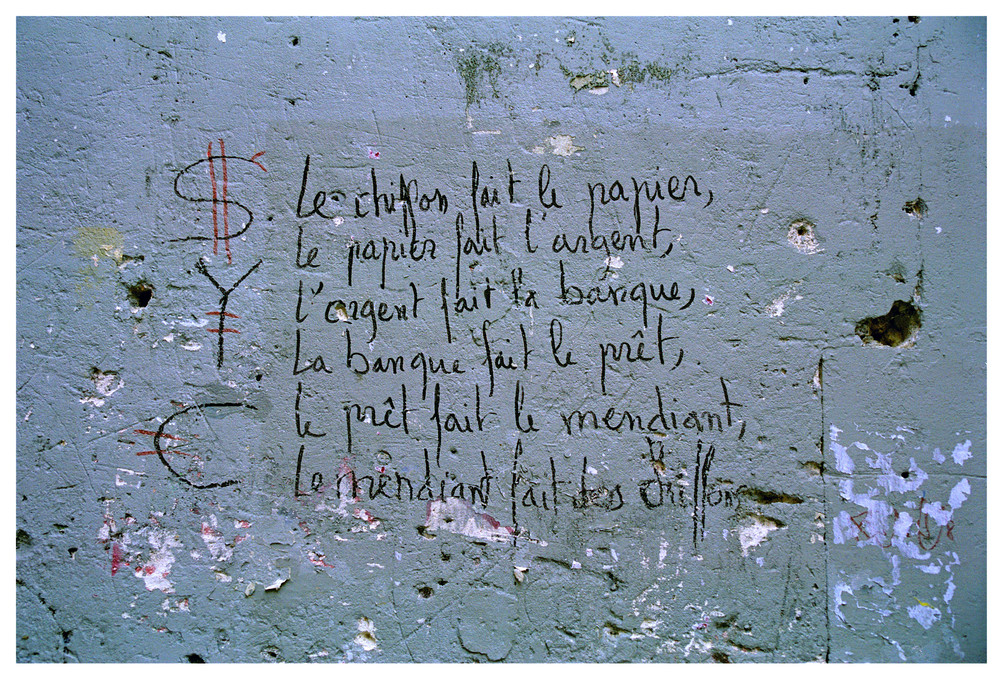 $. Le chiffon fait le papier,
le papier fait l'argent,
¥ l'argent fait la banque,
La banque fait le prêt,
€ le prêt fait le mendiant,
Le mendiant fait des chiffons